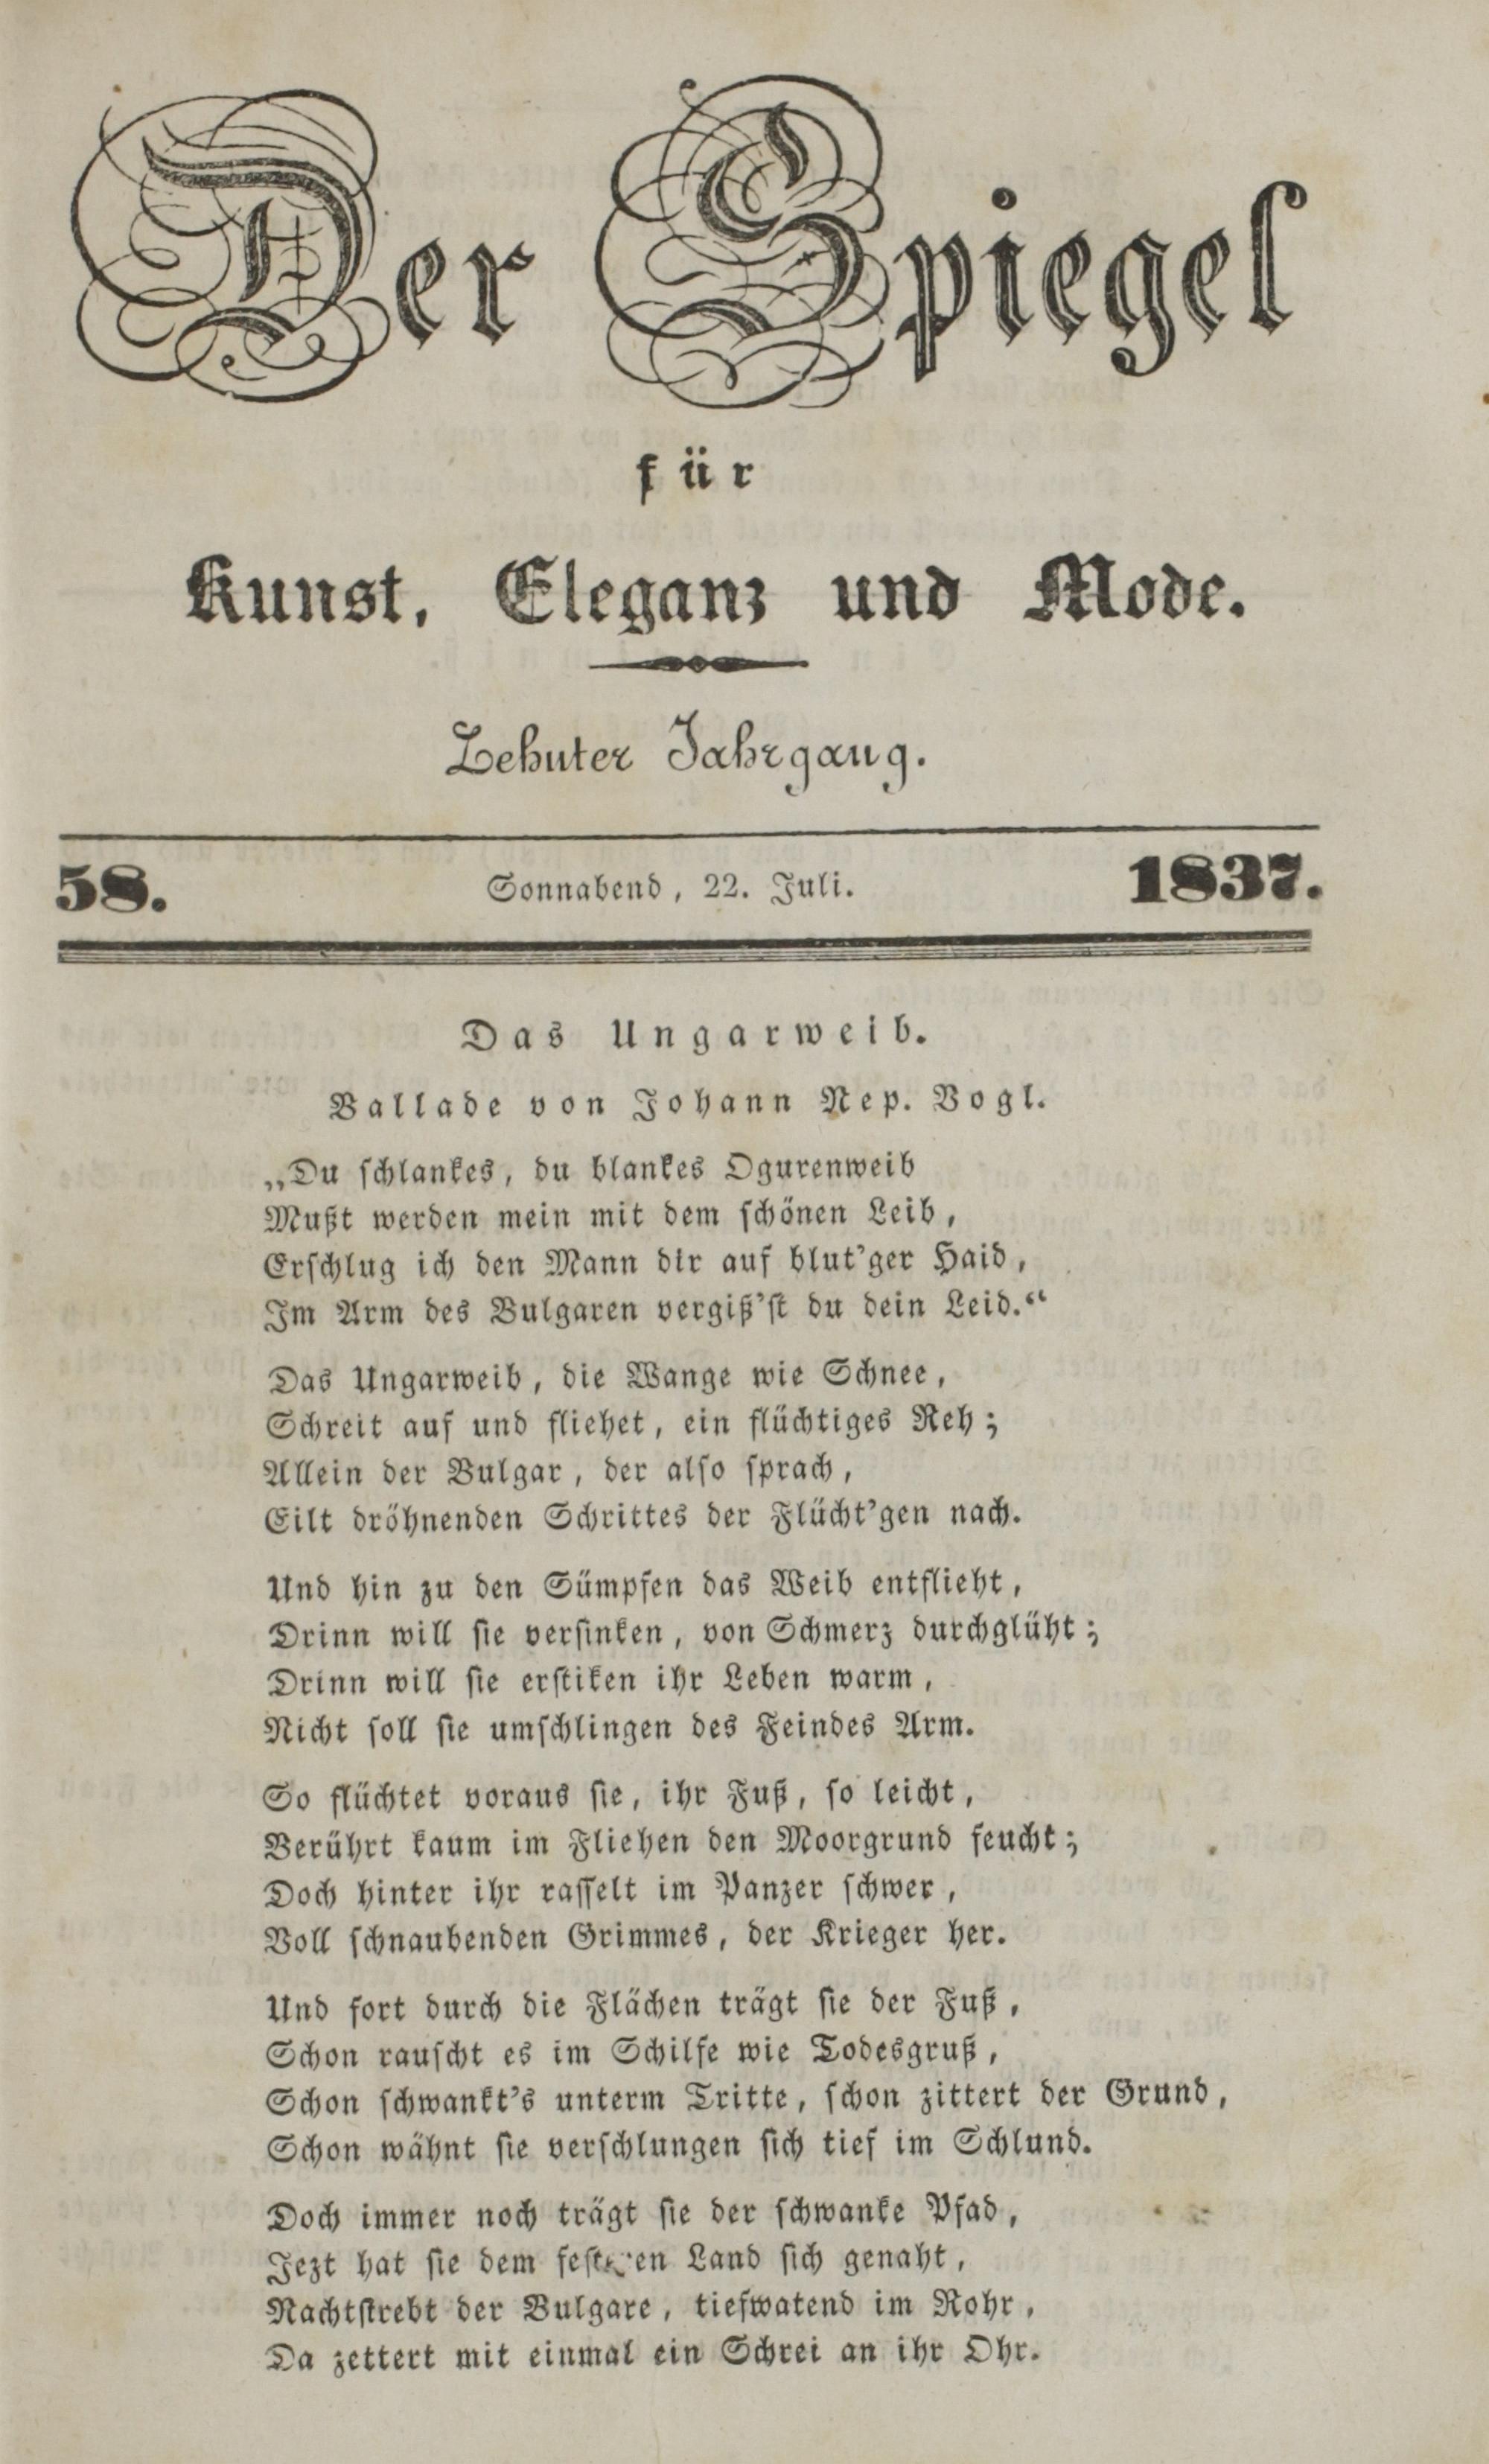 Der Spiegel
für
Kunst, Eleganz und Mode.
Zehnter Jahrgang.
58. Sonnabend, 22. Juli. 1837.
Das Ungarweib.
Ballade von Johann Nep. Vogl.
„Du schlankes, du blankes Ogurenweib
Mußt werden mein mit dem schönen Leib,
Erschlug ich den Mann dir auf blut'ger Haid,
Im Arm des Bulgaren vergiß'st du dein Leid.“
Das Ungarweib, die Wange wie Schnee,
Schreit auf und fliehet, ein flüchtiges Reh;
Allein der Bulgar, der also sprach,
Eilt dröhnenden Schrittes der Flücht'gen nach.
Und hin zu den Sümpfen das Weib entflieht,
Drinn will sie versinken, von Schmerz durchglüht;
Drinn will sie erstiken ihr Leben warm,
Nicht soll sie umschlingen des Feindes Arm.
So flüchtet voraus sie, ihr Fuß, so leicht,
Berührt kaum im Fliehen den Moorgrund feucht;
Doch hinter ihr rasselt im Panzer schwer,
Voll schnaubenden Grimmes, der Krieger her.
Und fort durch die Flächen trägt sie der Fuß,
Schon rauscht es im Schilfe wie Todesgruß,
Schon schwankt's unterm Tritte, schon zittert der Grund,
Schon wähnt sie verschlungen sich tief im Schlund.
Doch immer noch trägt sie der schwanke Pfad,
Jezt hat sie dem festeren Land sich genaht,
Nachtstrebt der Bulgare, tiefwatend im Rohr,
Da zettert mit einmal ein Schrei an ihr Ohr.